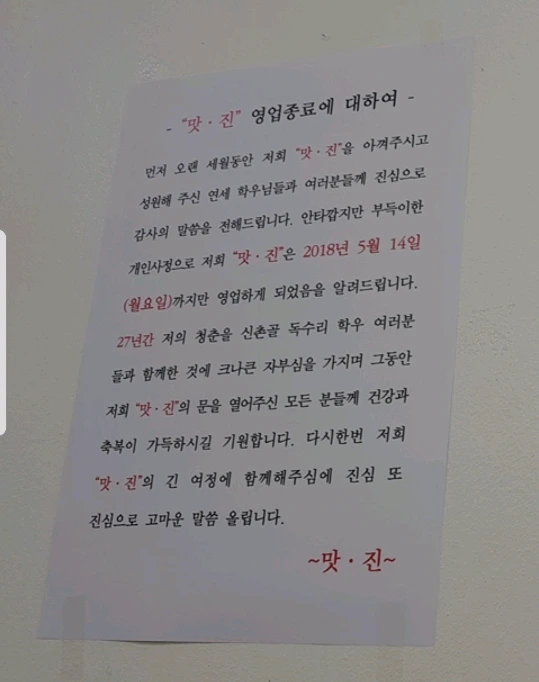 - "맛 · 진" 영업종료에 대하여 -
먼저 오랜 세월동안 저희 "맛 · 진"을 아껴주시고
성원해 주신 연세 학우님들과 여러분들께 진심으로
감사의 말씀을 전해드립니다. 안타깝지만 부득이한
개인사정으로 저희 "맛 · 진"은 2018년 5월 14일
(월요일)까지만 영업하게 되었음을 알려드립니다.
27년간 저의 청춘을 신촌골 독수리 학우 여러분
들과 함께한 것에 크나큰 자부심을 가지며 그동안
저희 "맛 · 진"의 문을 열어주신 모든 분들께 건강과
축복이 가득하시길 기원합니다. 다시한번 저희
"맛 · 진"의 긴 여정에 함께해주심에 진심 또
진심으로 고마운 말씀 올립니다.
~맛 · 진~